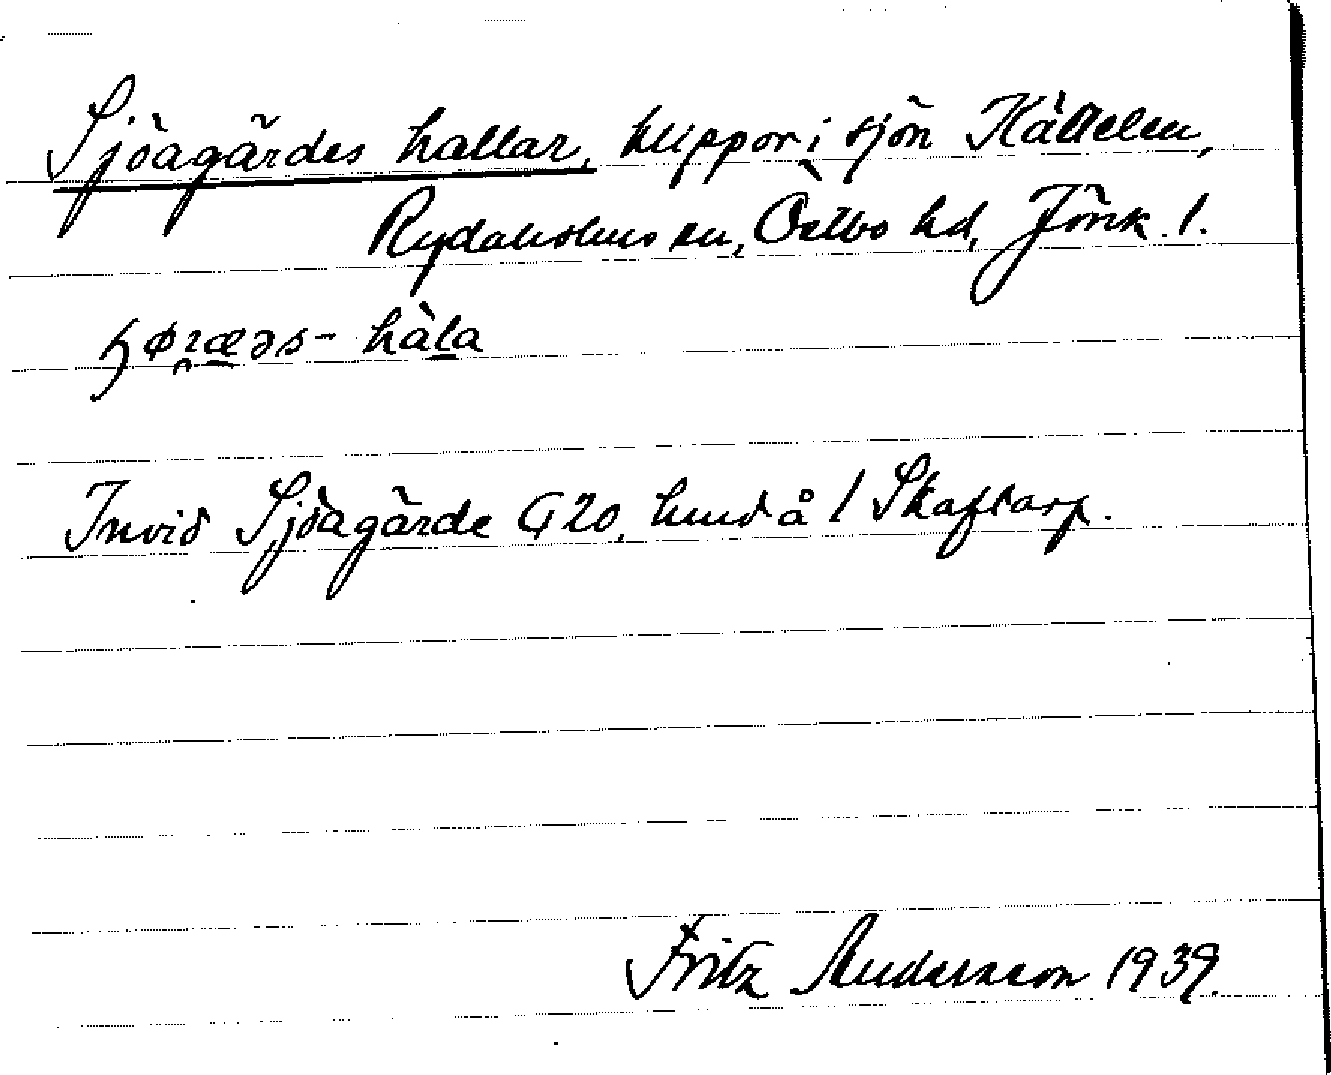 Sjöagärdes hallar, klippor i sjön Hällelen,
Rydaholms sn, Östbo hd, Jönk. l.
Invid Sjöagärde G 20, lund å / Skaftarp.
Fritz Andersson 1939.